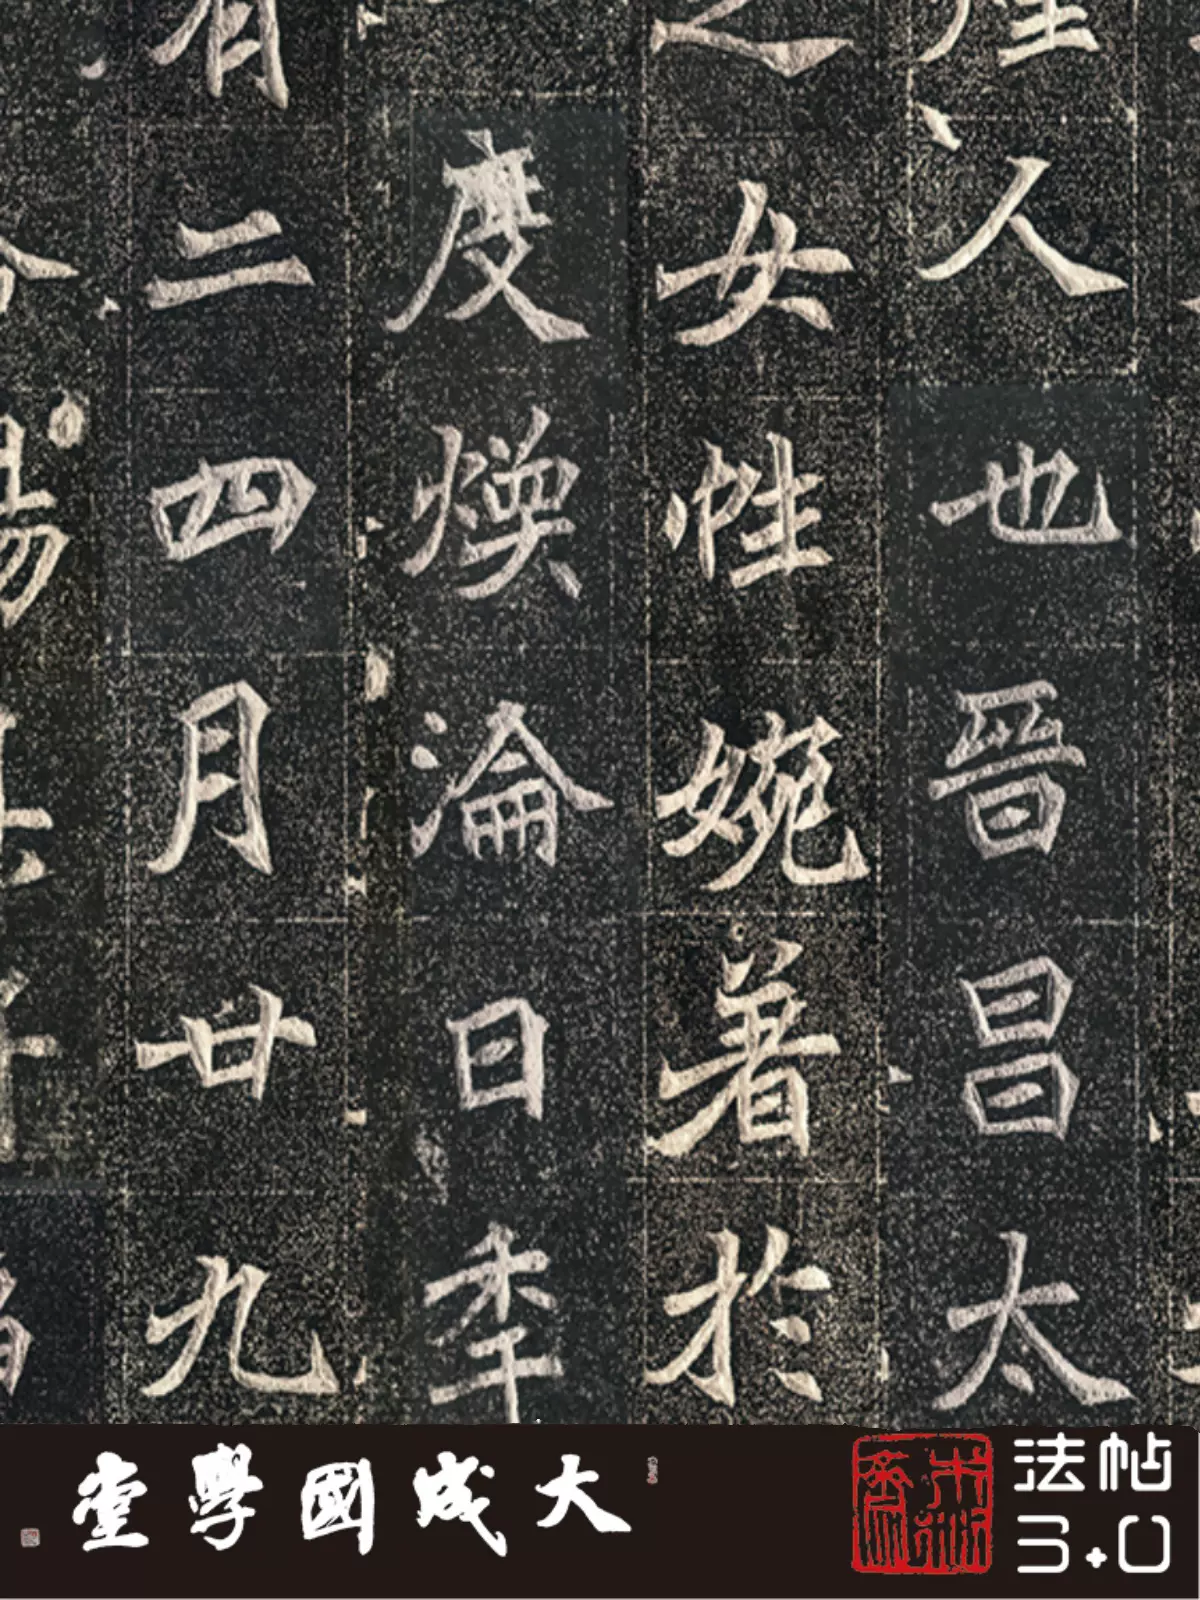 人也晉昌太
之女性婉著於
度煥瀹日季
有二四月廿九
大成國學堂
法帖
3.0